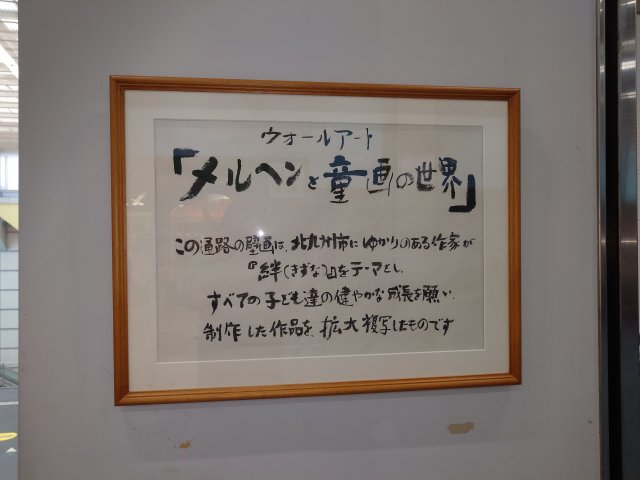 ウォールアート
「メルヘンと童画の世界」
この通路の壁画は、北九州市にゆかりのある作家が
『絆(きずな)』をテーマとし、
すべての子ども達の健やかな成長を願い、
制作した作品を、拡大複写したものです